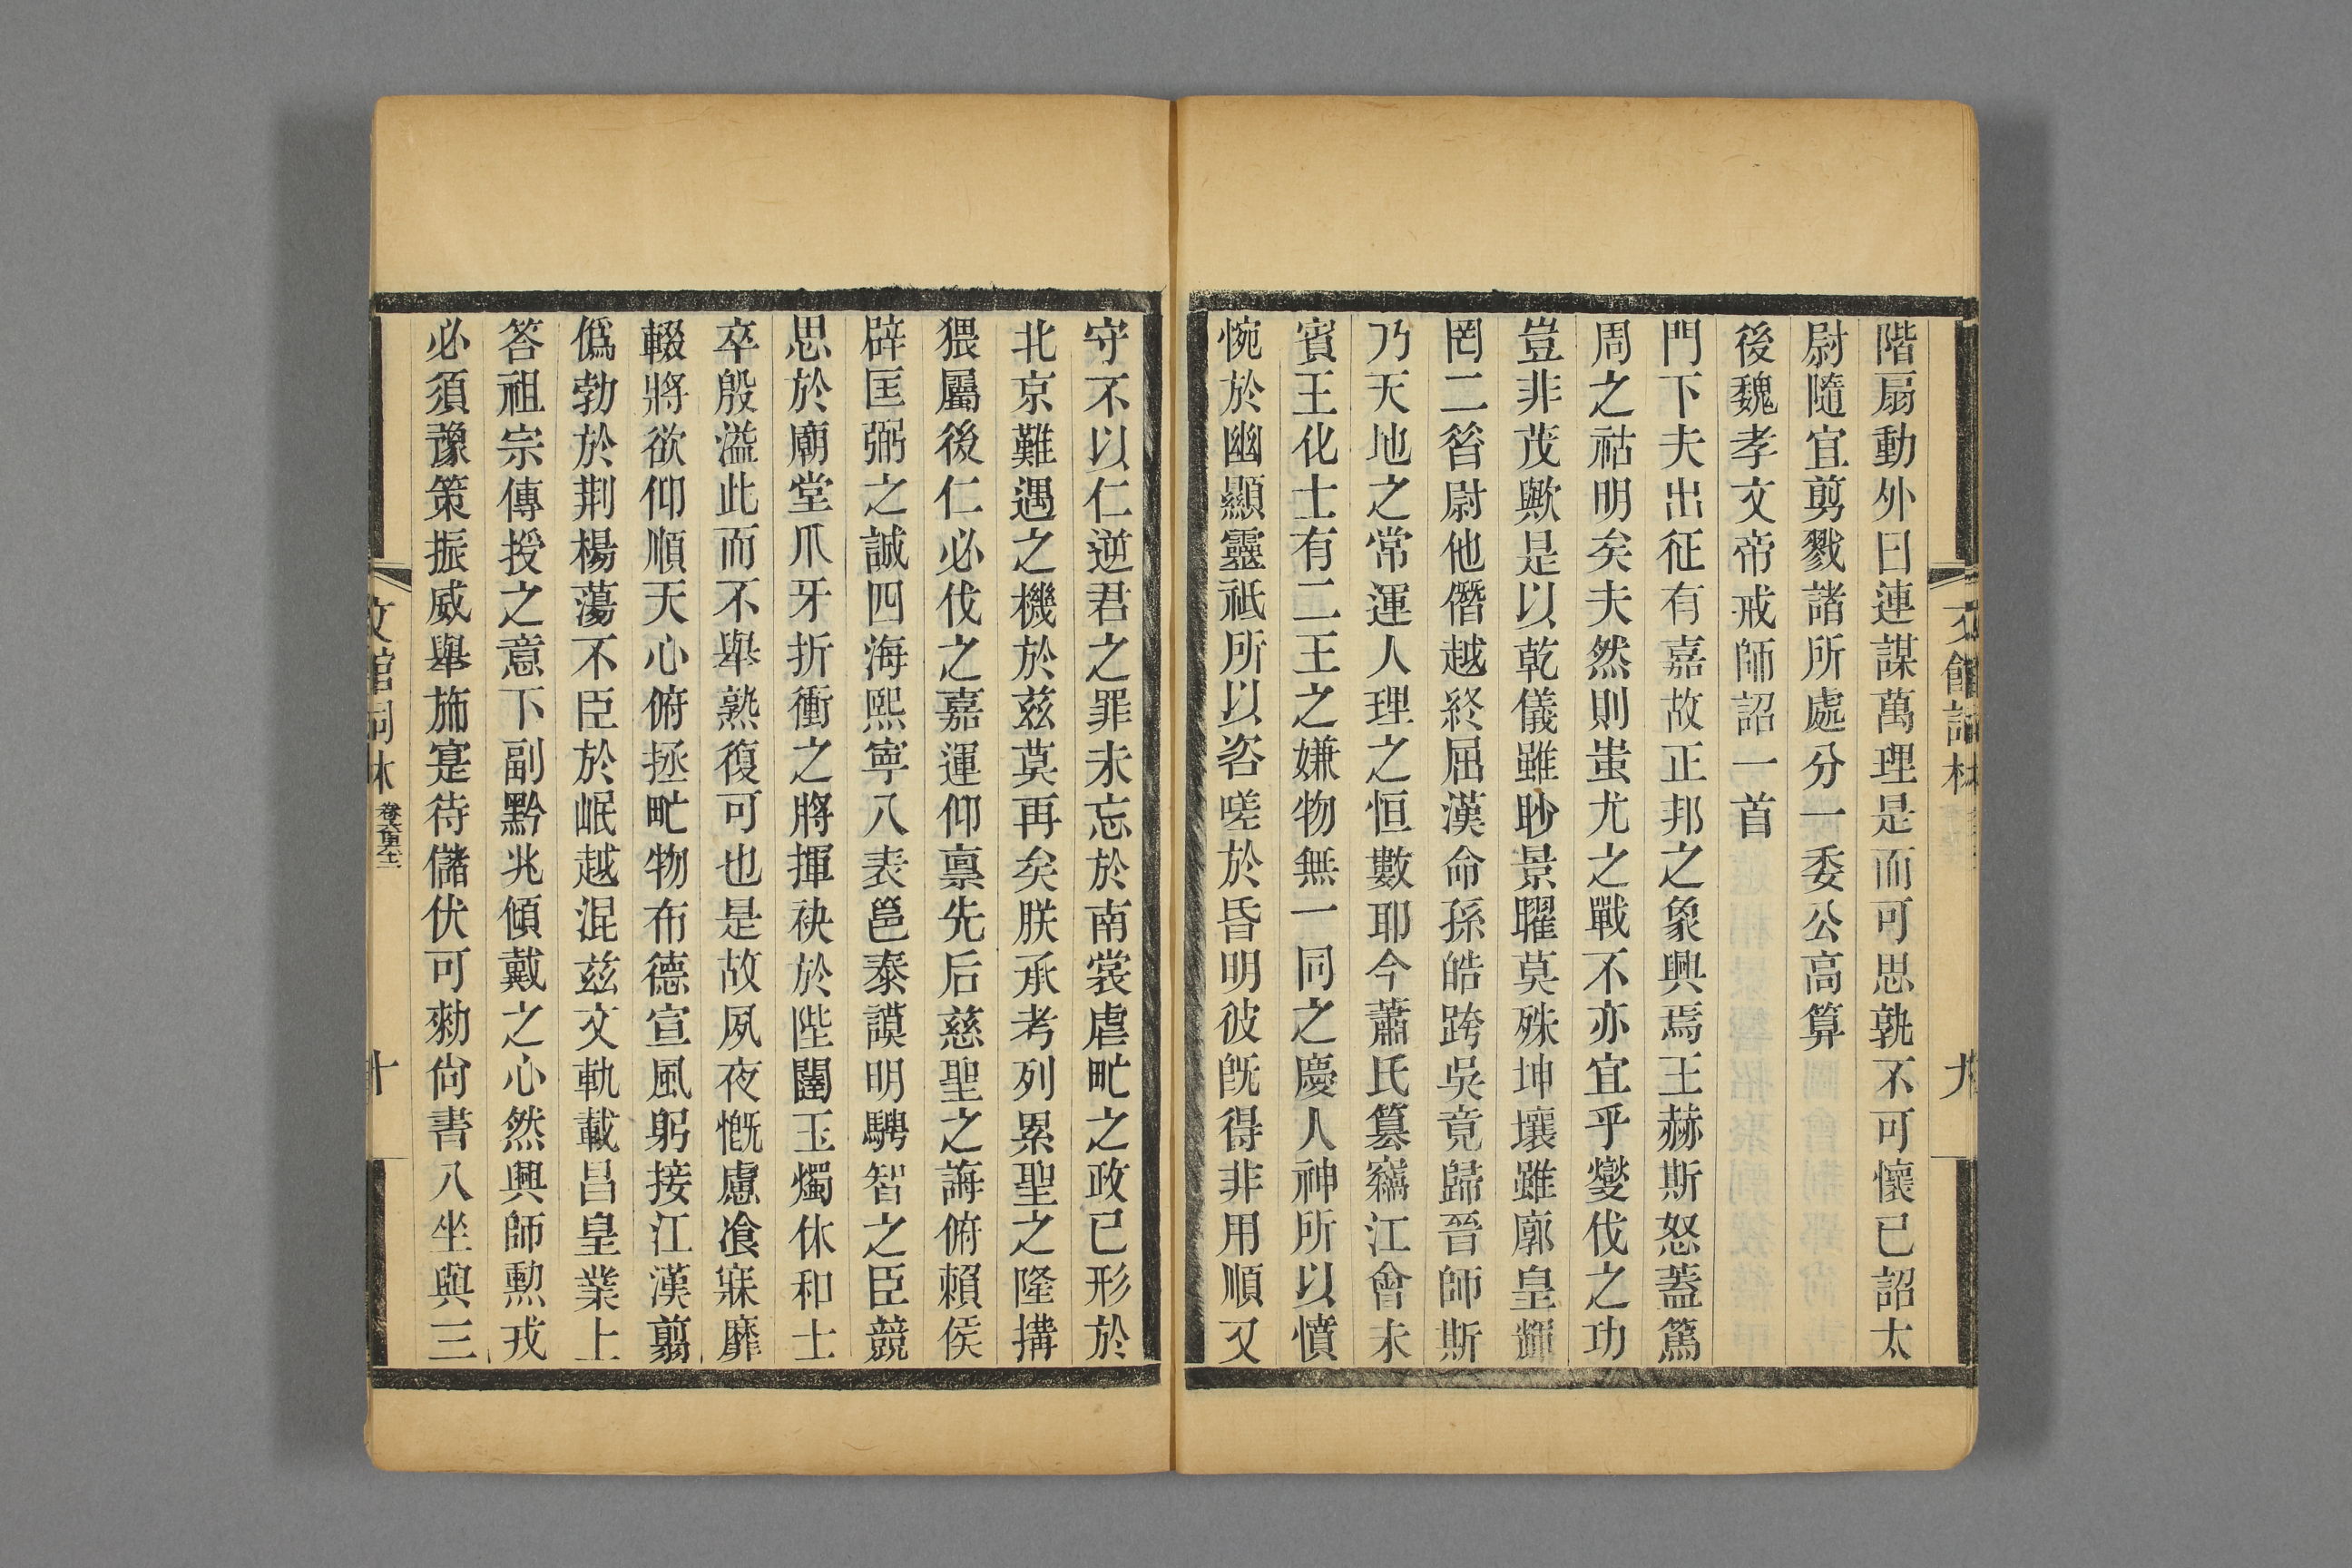 階扇動外曰連謀萬理是而可思孰不可懷已詔太
尉隨宜剪戮諸所處分一委公高算
後魏孝文帝戒師詔一首
門下夫出征有嘉故正邦之象興焉王赫斯怒蓋篤
周之祜明矣夫然則蚩尤之戰不亦宜乎燮伐之功
豈非茂歟是以乾儀雖眇景曜莫殊坤壤雖廓皇輝
罔二咎尉他僭越終屈漢命孫皓跨吳竟歸晉師斯
乃天地之常運人理之恒數耶今蕭氏篡竊江會未
賓王化士有二王之嫌物無一同之慶人神所以憤
惋於幽顯靈祇所以咨嗟於昏明彼旣得非用順又
守不以仁逆君之罪未忘於南裳虐甿之政已形於
北京難遇之機於茲莫再矣朕承考列累聖之隆搆
猥屬後仁必伐之嘉運仰稟先后慈聖之誨俯賴侯
辟匡弼之誠四海熙寧八表邕泰謨明騁智之臣競
思於廟堂爪牙折衝之將揮袂於陛闥玉燭休和士
卒殷溢此而不舉熟復可也是故夙夜慨慮飡寐靡
輟將欲仰順天心俯拯甿物布德宣風躬接江漢翦
僞勃於荆楊蕩不臣於岷越混茲文軌載昌皇業上
答祖宗傳授之意下副黔兆傾戴之心然興師勲戎
必須豫策振威舉施寔待儲伏可勑尙書八坐與三
文館詞林 九
文館詞林 十